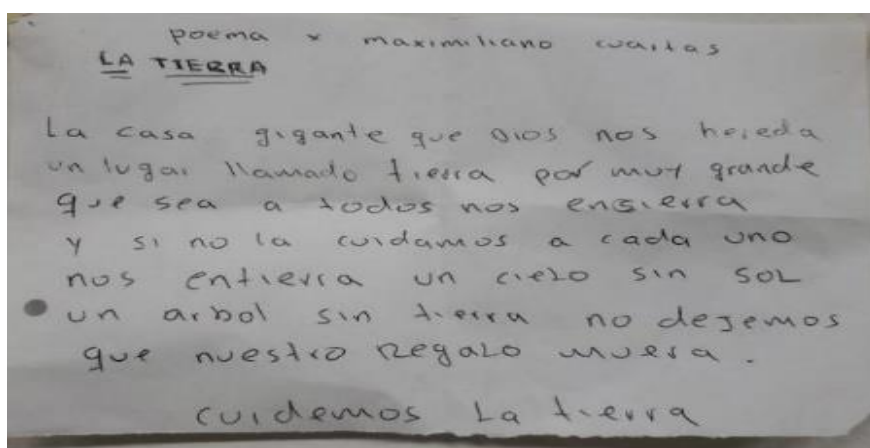 poema x maximiliano cuartas
LA TIERRA
La casa gigante que Dios nos hereda
un lugar llamado tierra por muy grande
que sea a todos nos ensierra
y si no la cuidamos a cada uno
nos entierra un cielo sin SOL
un arbol sin tierra no dejemos
que nuestro Regalo muera.
cuidemos La tierra